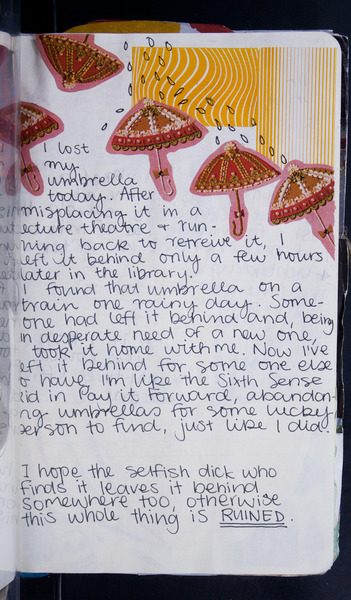 I lost
my
umbrella
today. After
misplacing it in a
lecture theatre + run-
ning back to retreive it, I
left it behind only a few hours
later in the library.
I found that umbrella on a
train one rainy day. Some-
one had left it behind and, being
in desperate need of a new one,
I took it home with me. Now I've
left it behind for some one else
to have, I'm like the Sixth Sense
kid in Pay it forward, abandon-
ing umbrellas for some lucky
person to find, just like I did.
I hope the selfish dick who
finds it leaves it behind
somewhere too, otherwise
this whole thing is RUINED.